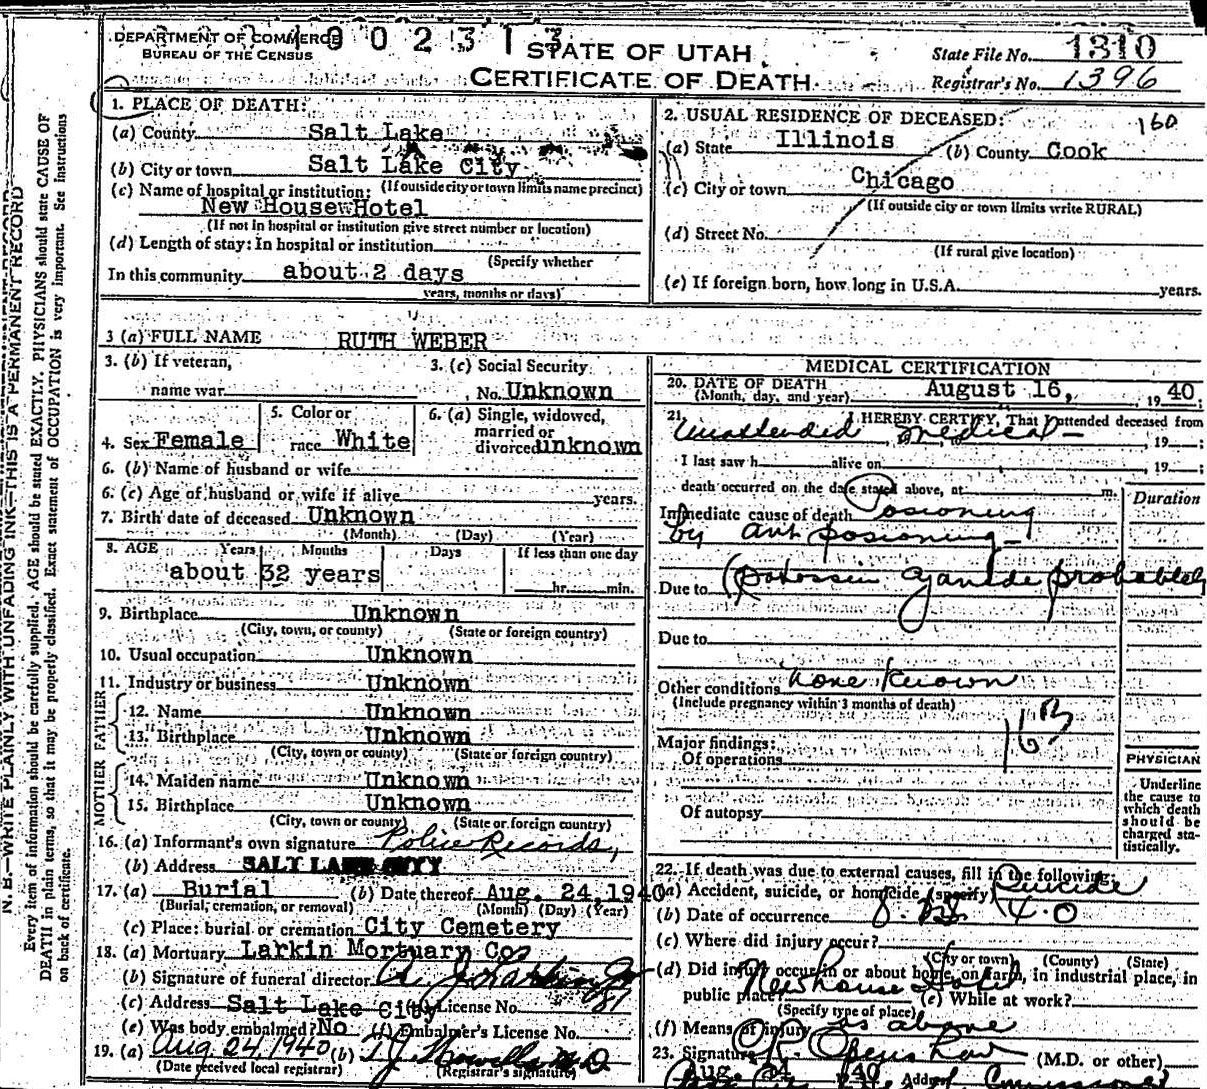 DEPARTMENT OF COMMERCE
BUREAU OF THE CENSUS
002313
STATE OF UTAH
CERTIFICATE OF DEATH
State File No. 1310
Registrar's No. 1396
N. B.—WRITE PLAINLY WITH UNFADING INK—THIS IS A PERMANENT RECORD
Every item of information should be carefully supplied. AGE should be stated EXACTLY. PHYSICIANS should state CAUSE OF
DEATH in plain terms, so that it may be properly classified. Exact statement of OCCUPATION is very important. See instructions
on back of certificate.
1. PLACE OF DEATH:
(a) County Salt Lake
(b) City or town Salt Lake City
(If outside city or town limits name precinct)
(c) Name of hospital or institution:
New House Hotel
(If not in hospital or institution give street number or location)
(d) Length of stay: In hospital or institution
(Specify whether
In this community about 2 days
years, months or days)
2. USUAL RESIDENCE OF DECEASED:
160
(a) State Illinois (b) County Cook
(c) City or town Chicago
(If outside city or town limits write RURAL)
(d) Street No.
(If rural give location)
(e) If foreign born, how long in U.S.A. years.
3 (a) FULL NAME RUTH WEBER
3. (b) If veteran,
name war
3. (c) Social Security
No. Unknown
4. Sex Female
5. Color or
race White
6. (a) Single, widowed,
married or
divorced unknown
6. (b) Name of husband or wife
6. (c) Age of husband or wife if alive years.
7. Birth date of deceased Unknown
(Month) (Day) (Year)
8. AGE Years Months Days If less than one day
about 32 years hr. min.
9. Birthplace Unknown
(City, town, or county) (State or foreign country)
10. Usual occupation Unknown
11. Industry or business Unknown
FATHER
12. Name Unknown
13. Birthplace Unknown
(City, town or county) (State or foreign country)
MOTHER
14. Maiden name Unknown
15. Birthplace Unknown
(City, town or county) (State or foreign country)
16. (a) Informant's own signature Police Records,
(b) Address SALT LAKE CITY
17. (a) Burial (b) Date thereof Aug. 24, 1940
(Burial, cremation, or removal) (Month) (Day) (Year)
(c) Place: burial or cremation City Cemetery
18. (a) Mortuary Larkin Mortuary Co
(b) Signature of funeral director
(c) Address Salt Lake City License No. 81
(e) Was body embalmed? No (f) Embalmer's License No.
19. (a) Aug 24, 1940 (b)
(Date received local registrar) (Registrar's signature)
MEDICAL CERTIFICATION
20. DATE OF DEATH August 16, 1940
(Month, day, and year)
21. I HEREBY CERTIFY, That I attended deceased from
Unattended medical - 19 ;
I last saw h alive on 19 ;
death occurred on the date stated above, at m.
Duration
Immediate cause of death Posioning
by posioning -
Due to probably
Due to
Other conditions None Known
(Include pregnancy within 3 months of death)
Major findings:
Of operations
Of autopsy
PHYSICIAN
Underline
the cause to
which death
should be
charged sta-
tistically.
22. If death was due to external causes, fill in the following:
(a) Accident, suicide, or homicide (specify) Suicide
(b) Date of occurrence
(c) Where did injury occur?
(City or town) (County) (State)
(d) Did injury occur in or about home, on farm, in industrial place, in
public place? Newhouse Hotel (e) While at work?
(Specify type of place)
(f) Means of injury as above
23. Signature (M.D. or other)